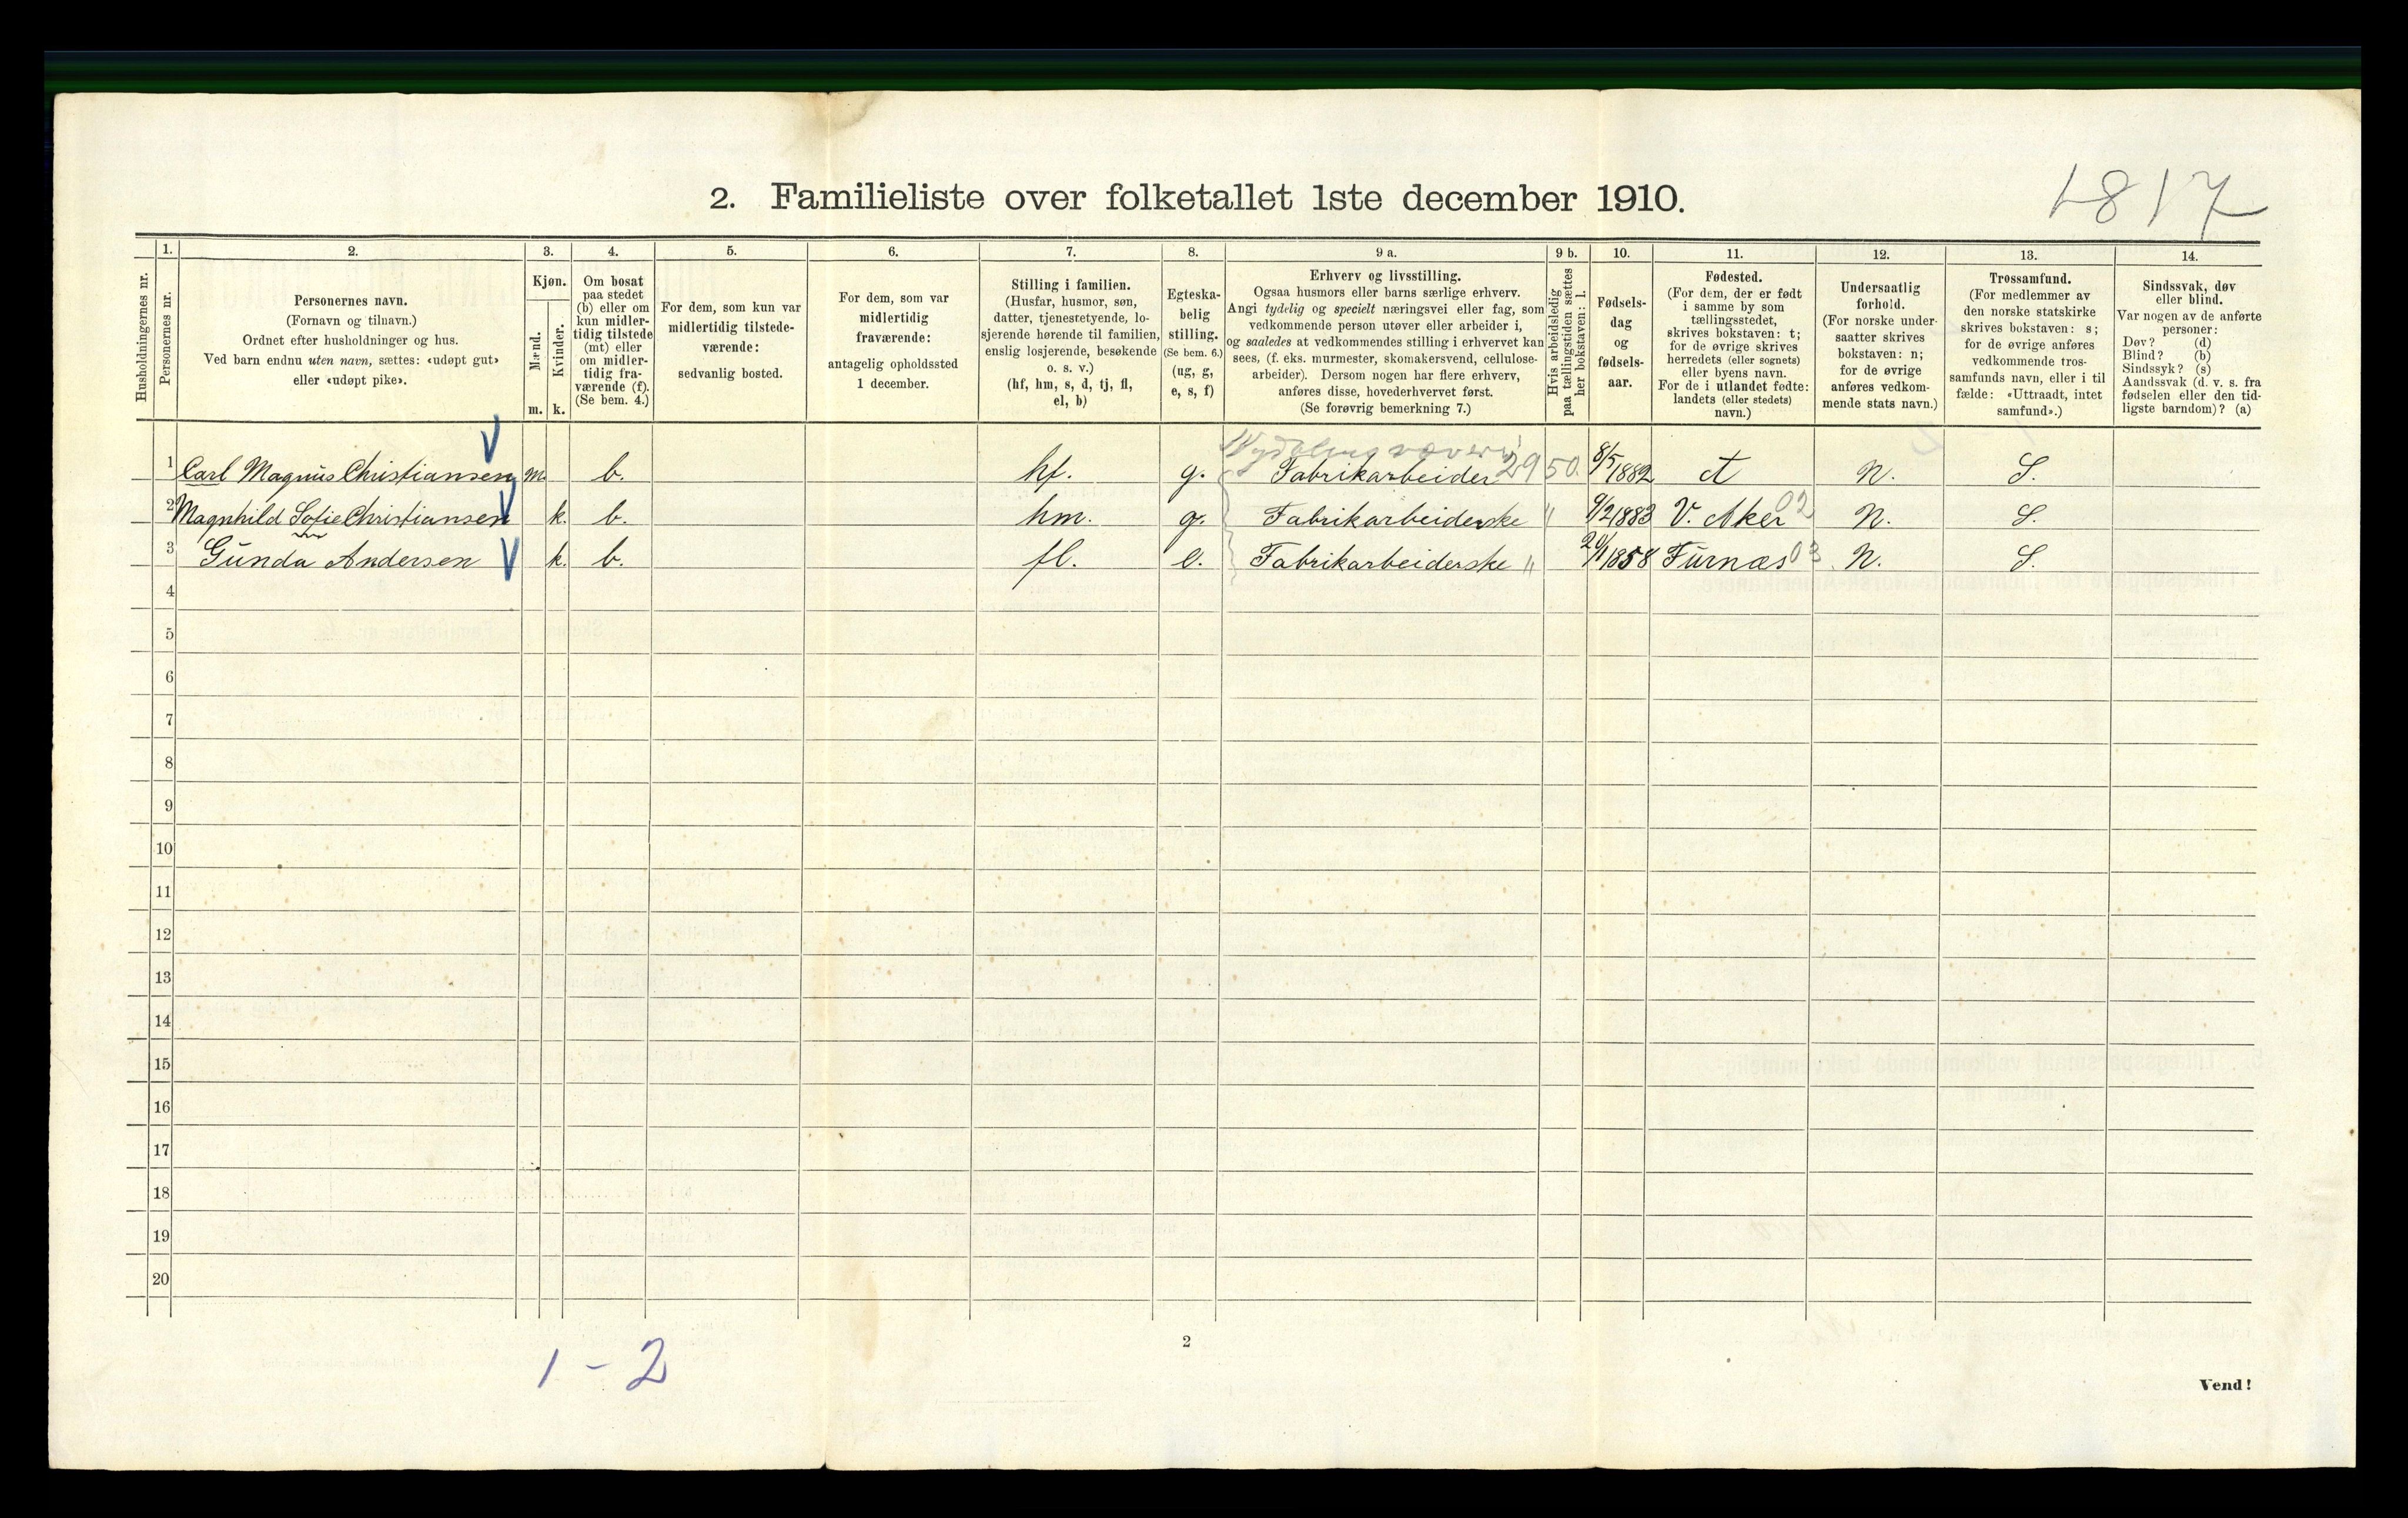 1817
2. Familieliste over folketallet 1ste december 1910.
Husholdningernes nr.
1.
Personernes nr.
2.
Personernes navn.
(Fornavn og tilnavn.)
Ordnet efter husholdninger og hus.
Ved barn endnu uten navn, sættes: «udøpt gut»
eller «udøpt pike».
3.
Kjøn.
Mænd.
Kvinder.
m. k.
4.
Om bosat
paa stedet
(b) eller om
kun midler-
tidig tilstede
(mt) eller
om midler-
tidig fra-
værende (f).
(Se bem. 4.)
5.
For dem, som kun var
midlertidig tilstede-
værende:
sedvanlig bosted.
6.
For dem, som var
midlertidig
fraværende:
antagelig opholdssted
1 december.
7.
Stilling i familien.
(Husfar, husmor, søn,
datter, tjenestetyende, lo-
sjerende hørende til familien,
enslig losjerende, besøkende
o. s. v.)
(hf, hm, s, d, tj, fl,
el, b)
8.
Egteska-
belig
stilling.
(Se bem. 6.)
(ug, g,
e, s, f)
9 a.
Erhverv og livsstilling.
Ogsaa husmors eller barns særlige erhverv.
Angi tydelig og specielt næringsvei eller fag, som
vedkommende person utøver eller arbeider i,
og saaledes at vedkommendes stilling i erhvervet kan
sees, (f. eks. murmester, skomakersvend, cellulose-
arbeider). Dersom nogen har flere erhverv,
anføres disse, hovederhvervet først.
(Se forøvrig bemerkning 7.)
9 b.
Hvis arbeidsledig
paa tællingstiden sættes
her bokstaven: l.
10.
Fødsels-
dag
og
fødsels-
aar.
11.
Fødested.
(For dem, der er født
i samme by som
tællingsstedet,
skrives bokstaven: t;
for de øvrige skrives
herredets (eller sognets)
eller byens navn.
For de i utlandet fødte:
landets (eller stedets)
navn.)
12.
Undersaatlig
forhold.
(For norske under-
saatter skrives
bokstaven: n;
for de øvrige
anføres vedkom-
mende stats navn.)
13.
Trossamfund.
(For medlemmer av
den norske statskirke
skrives bokstaven: s;
for de øvrige anføres
vedkommende tros-
samfunds navn, eller i til
fælde: «Uttraadt, intet
samfund».)
14.
Sindssvak, døv
eller blind.
Var nogen av de anførte
personer:
Døv? (d)
Blind? (b)
Sindssyk? (s)
Aandssvak (d. v. s. fra
fødselen eller den tid-
ligste barndom)? (a)
1 Carl Magnus Christiansen m b. hf. g. Fabrikarbeider 2950. 8/5 1882 t N. S.
2 Magnhild Sofie Christiansen k. b. hm. g. Fabrikarbeiderske " 9/2 1883 V. Aker 02 N. S.
3 Gunda Andersen k. b. fl. e. Fabrikarbeiderske " 20/1 1858 Furnæs 03 N. S.
4
5
6
7
8
9
10
11
12
13
14
15
16
17
18
19
20
1 - 2
2
Vend!